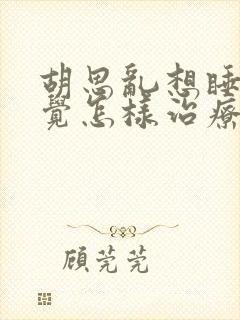 胡思亂想睡
覺怎樣治療
顧莞莞